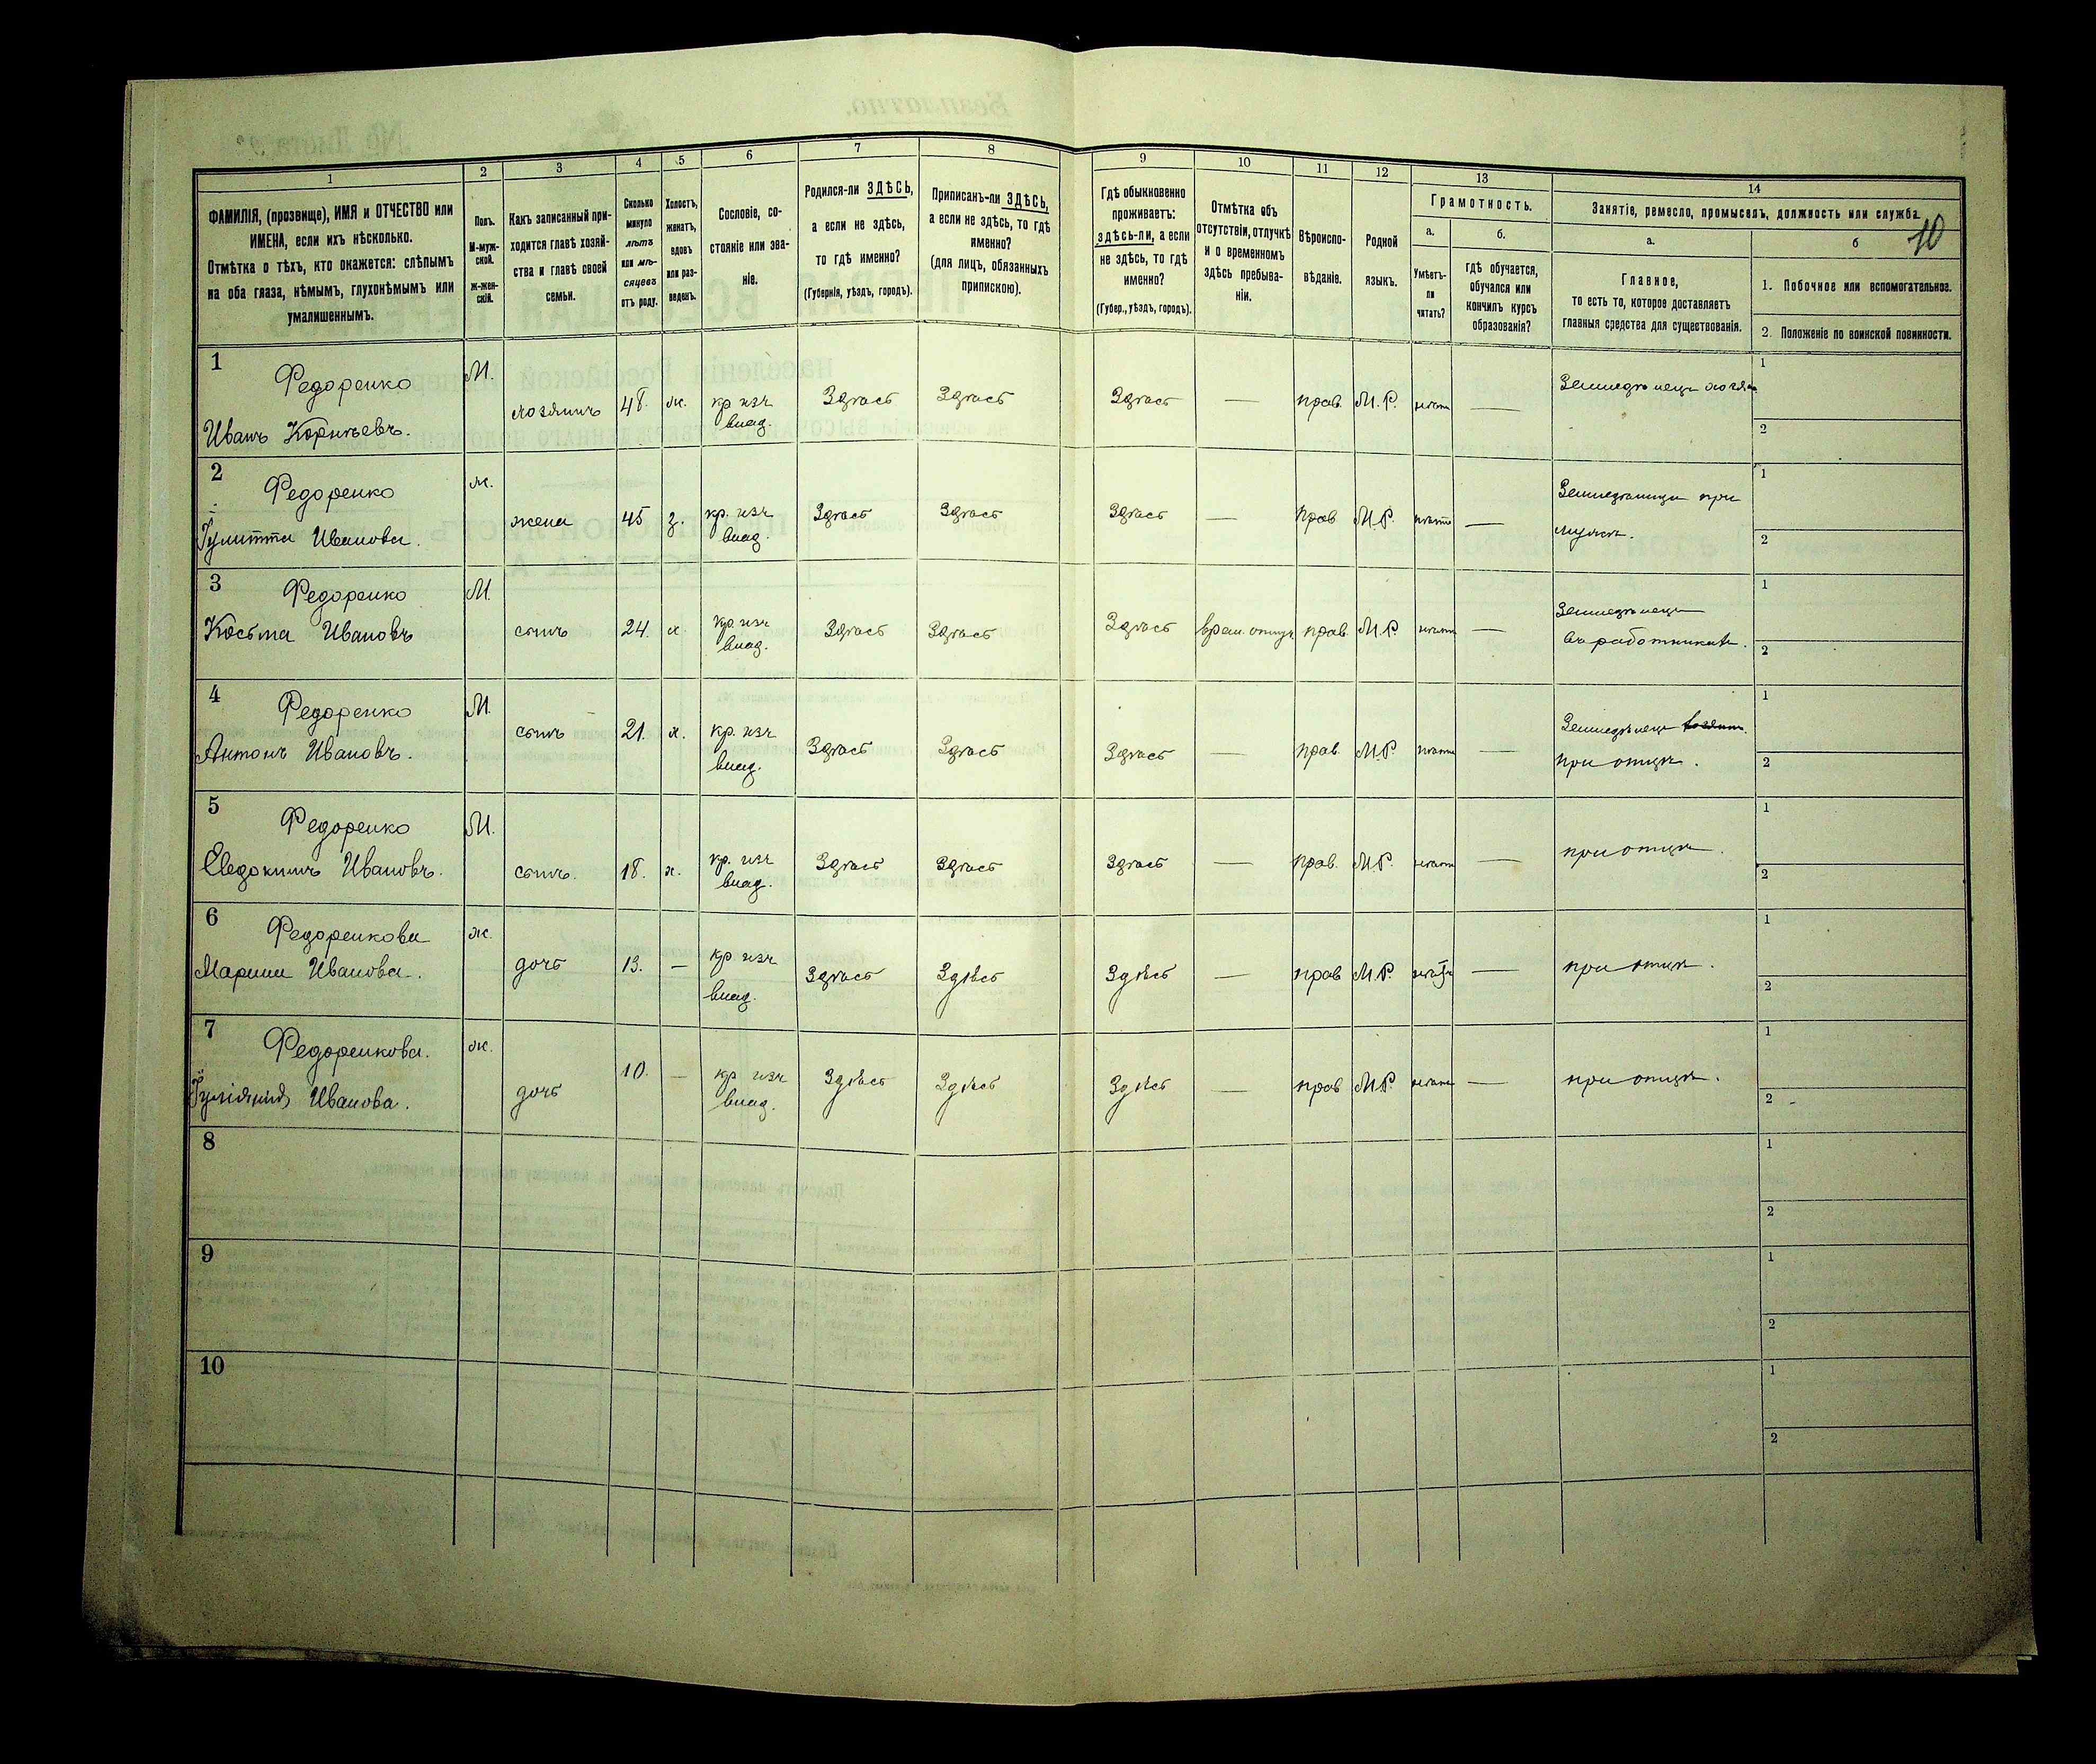 10
1 2 3 4 5 6 7 8 9 10 11 12 13 14
ФАМИЛІЯ, (прозвище), ИМЯ и ОТЧЕСТВО или
ИМЕНА, если ихъ нѣсколько.
Отмѣтка о тѣхъ, кто окажется: слѣпымъ
на оба глаза, нѣмымъ, глухонѣмымъ или
умалишеннымъ.
Полъ.
М-муж-
ской.
Ж-жен-
скій.
Какъ записанный при-
ходится главѣ хозяй-
ства и главѣ своей
семьи.
Сколько
минуло
лѣтъ
или мѣ-
сяцевъ
отъ роду.
Холостъ,
женатъ,
вдовъ
или раз-
веденъ.
Сословіе, со-
стояніе или зва-
ніе.
Родился-ли ЗДѢСЬ,
а если не здѣсь,
то гдѣ именно?
(Губернія, уѣздъ, городъ).
Приписанъ-ли ЗДѢСЬ,
а если не здѣсь, то гдѣ
именно?
(для лицъ, обязанныхъ
припискою).
Гдѣ обыкновенно
проживаетъ:
здѣсь-ли, а если
не здѣсь, то гдѣ
именно?
(Губер., уѣздъ, городъ).
Отмѣтка объ
отсутствіи, отлучкѣ
и о временномъ
здѣсь пребыва-
ніи.
Вѣроиспо-
вѣданіе.
Родной
языкъ.
Грамотность.
а.
Умѣетъ-
ли
читать?
б.
гдѣ обучается,
обучался или
кончилъ курсъ
образованія?
Занятіе, ремесло, промыселъ, должность или служба.
а.
Главное,
то есть то, которое доставляетъ
главныя средства для существованія.
б
1. Побочное или вспомогательное.
2. Положеніе по воинской повинности.
1 Федоренко М.
Иванъ Корнѣевъ. хозяинъ 48. ж. кр. изъ влад. Здѣсь Здѣсь Здѣсь — прав. М.Р. нѣтъ — Земледѣлецъ хозяинъ
1
2
2 Федоренко ж.
Іулитта Иванова. жена 45 з. кр. изъ влад. Здѣсь Здѣсь Здѣсь — прав М.Р. нѣтъ — Земледѣлица при
мужѣ.
1
2
3 Федоренко М.
Косьма Ивановъ сынъ 24. х. кр. изъ влад. Здѣсь Здѣсь Здѣсь прав. М.Р. нѣтъ — Земледѣлецъ
въ работникахъ.
1
2
4 Федоренко М.
Антонъ Ивановъ. сынъ 21. х. кр. изъ влад. Здѣсь Здѣсь Здѣсь — прав. М.Р нѣтъ — Земледѣлецъ
при отцѣ.
1
2
5 Федоренко М.
Евдокимъ Ивановъ. сынъ. 18. х. кр. изъ влад. Здѣсь Здѣсь Здѣсь — прав. М.Р. нѣтъ — при отцѣ.
1
2
6 Федоренкова ж.
Марина Иванова. дочь 13. — кр изъ влад. Здѣсь Здѣсь Здѣсь — прав М.Р. нѣтъ — при отцѣ.
1
2
7 Федоренкова. ж.
Иванова. дочь 10. — кр изъ влад. Здѣсь Здѣсь Здѣсь — прав М.Р. нѣтъ — при отцѣ.
1
2
8
1
2
9
1
2
10
1
2